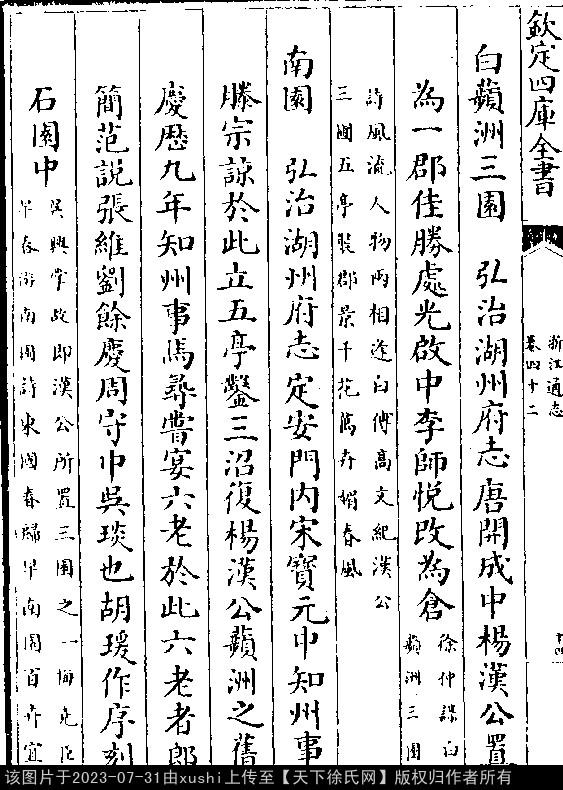 欽定四庫全書
浙江通志
卷四十二
白蘋洲三園 弘治湖州府志唐開成中楊漢公置
為一郡佳勝處光啟中李師悅改為倉
徐仲謀白
蘋洲三園
詩風流人物兩相逢白傅高文紀漢公
三園五亭裝郡景千花萬卉媚春風
南園 弘治湖州府志定安門內宋寶元中知州事
滕宗諒於此立五亭鑿三沼復楊漢公蘋洲之舊
慶歷九年知州事馬尋嘗宴六老於此六老者郎
簡范說張維劉餘慶周守中吳琰也胡瑗作序刻
石園中
吳興掌故即漢公所置三園之一梅堯臣
早春游南園詩東國春歸早南園百卉宜
该图片于2023-07-31由xushi上传至【天下徐氏网】版权归作者所有